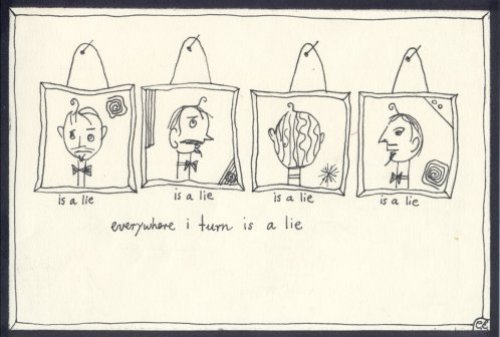 is a lie is a lie is a lie is a lie
everywhere i turn is a lie